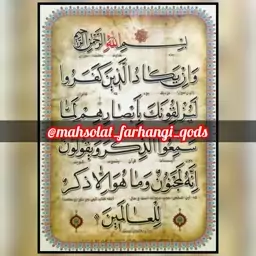 بسم الله الرحمن الرحیم
وَإِن يَكَادُ الَّذِينَ كَفَرُوا
لَيُزْلِقُونَكَ بِأَبْصَارِهِمْ لَمَّا
@mahsolat_farhangi_qods
سَمِعُوا الذِّكْرَ وَيَقُولُونَ
إِنَّهُ لَمَجْنُونٌ وَمَا هُوَ إِلَّا ذِكْرٌ
لِلْعَالَمِينَ